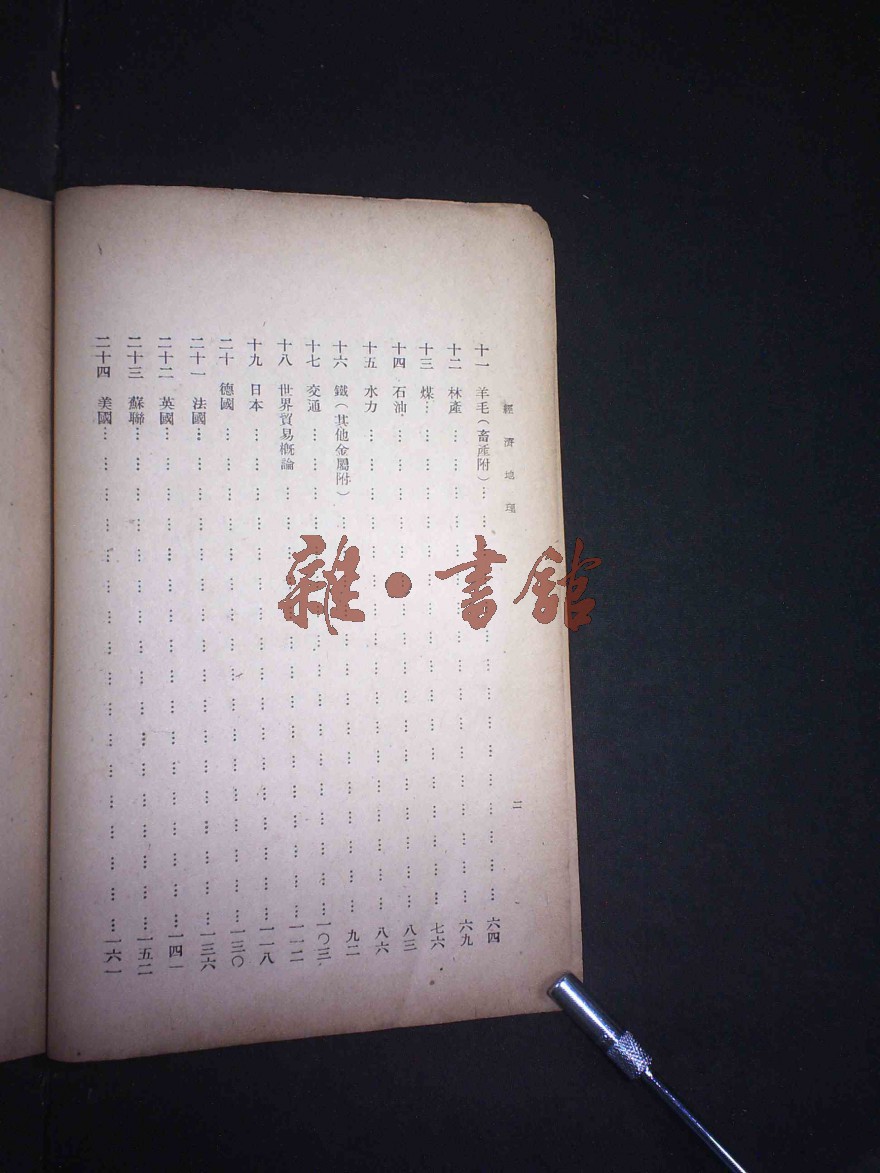 經濟地理
二
十一 羊毛(畜產附)…………六四
十二 林產…………六九
十三 煤…………七六
十四 石油…………八三
十五 水力…………八六
十六 鐵(其他金屬附)…………九二
十七 交通…………一〇三
十八 世界貿易概論…………一一二
十九 日本…………一一八
二十 德國…………一三〇
二十一 法國…………一三六
二十二 英國…………一四一
二十三 蘇聯…………一五二
二十四 美國…………一六一
雜·書館